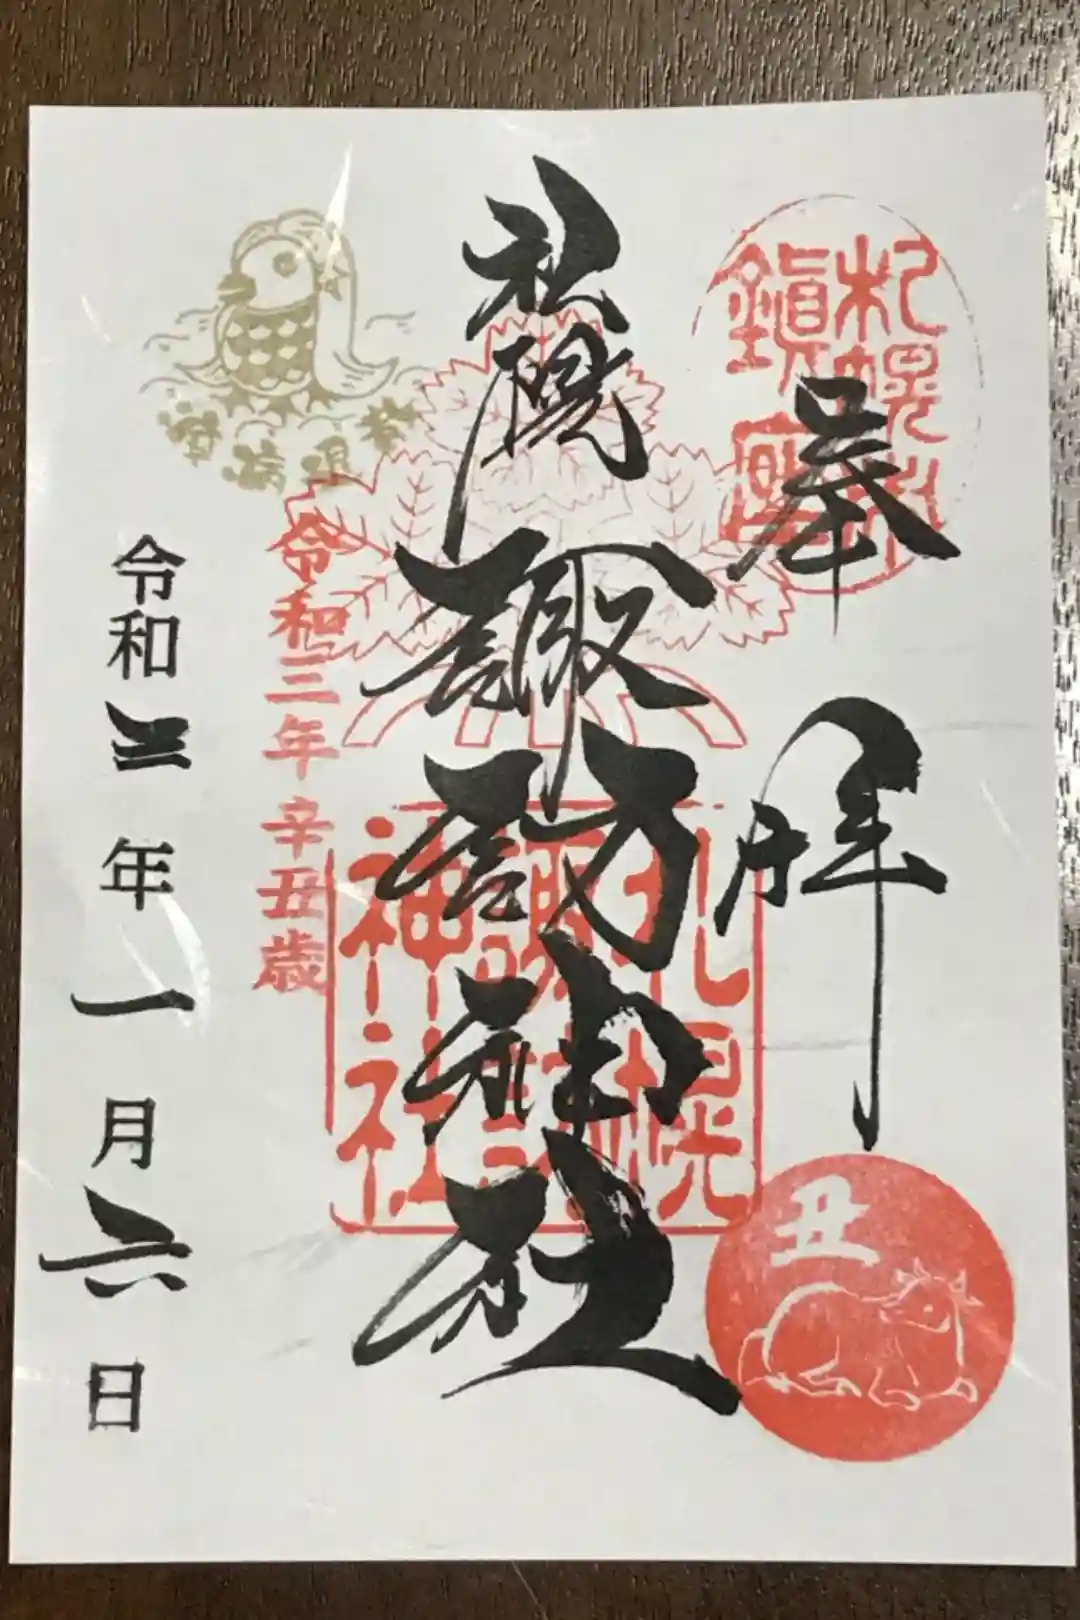 奉拝
札幌諏訪神社
札幌村
鎮座
札幌
諏訪
神社
丑
令和三年辛丑歳
令和三年一月六日